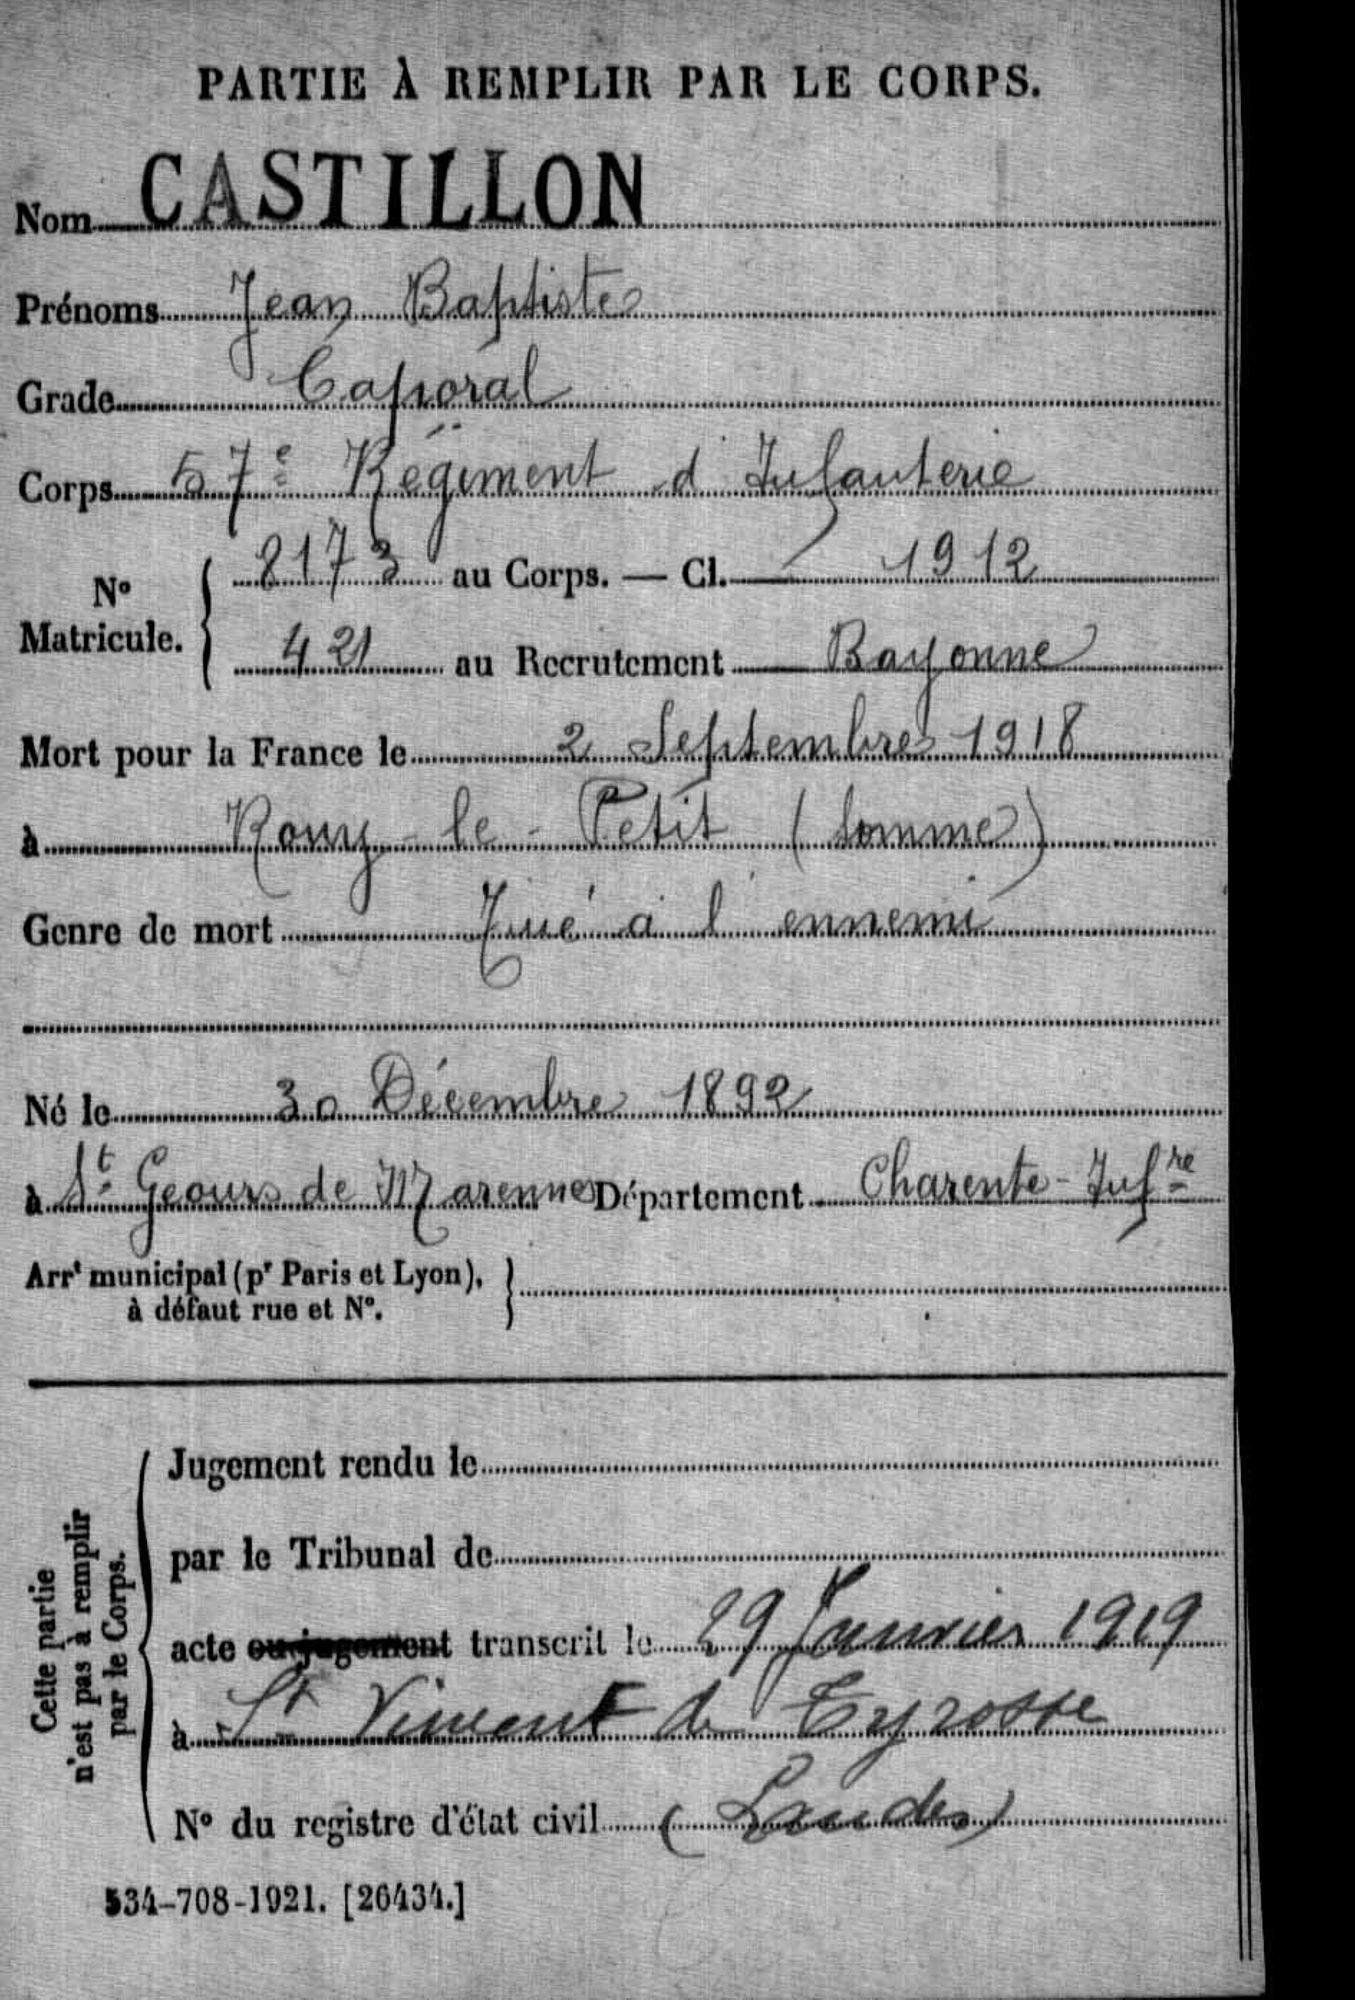 PARTIE À REMPLIR PAR LE CORPS.
Nom CASTILLON
Prénoms Jean Baptiste
Grade Caporal
Corps 57e Régiment d'Infanterie
No Matricule. { 8173 au Corps. — Cl. 1912
421 au Recrutement Bayonne
Mort pour la France le 2 Septembre 1918
à Rouy-le-Petit (Somme)
Genre de mort Tué à l'ennemi
Né le 30 Décembre 1892
à St Geours de Marennes Département Charente-Infre
Arrt municipal (pr Paris et Lyon),
à défaut rue et No.
Cette partie
n'est pas à remplir
par le Corps.
Jugement rendu le
par le Tribunal de
acte ou jugement transcrit le 29 Janvier 1919
à St Vincent de Tyrosse
No du registre d'état civil (Landes)
534-708-1921. [26434.]